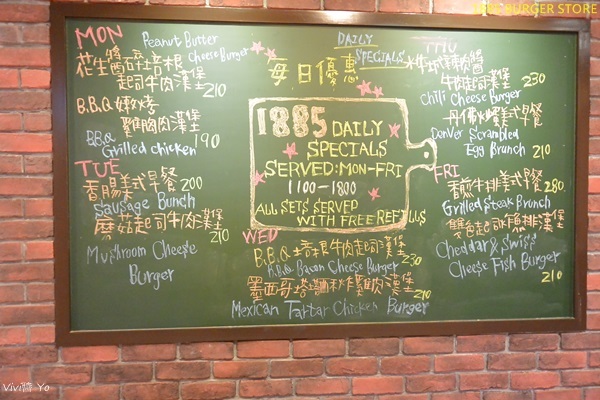 1885 BURGER STORE
MON
Peanut Butter
Cheese Burger
花生醬酥培根
起司牛肉漢堡
210
B.B.Q 嫩烤
雞胸肉漢堡
190
B.B.Q
Grilled chicken
TUE
香腸美式早餐 200
Sausage Bunch
蘑菇起司牛肉漢堡
210
Mushroom Cheese
Burger
DAILY
SPECIALS
每日優惠
1885 DAILY
SPECIALS
SERVED: MON-FRI
1100-1800
ALL SETS SERVED
WITH FREE REFILLS
WED
B.B.Q 培根牛肉起司漢堡
B.B.Q Bacon Cheese Burger
230
墨西哥塔塔雞肉漢堡
210
Mexican Tartar Chicken Burger
THU
牛肉起司漢堡 230
Chili Cheese Burger
丹佛炒蛋美式早餐
Danver Scrambled
Egg Brunch 210
FRI
煎牛排美式早餐 280
Grilled Steak Brunch
雙色起司魚排漢堡
Cheddar & Swiss
Cheese Fish Burger
210
Vivi醬 Yo